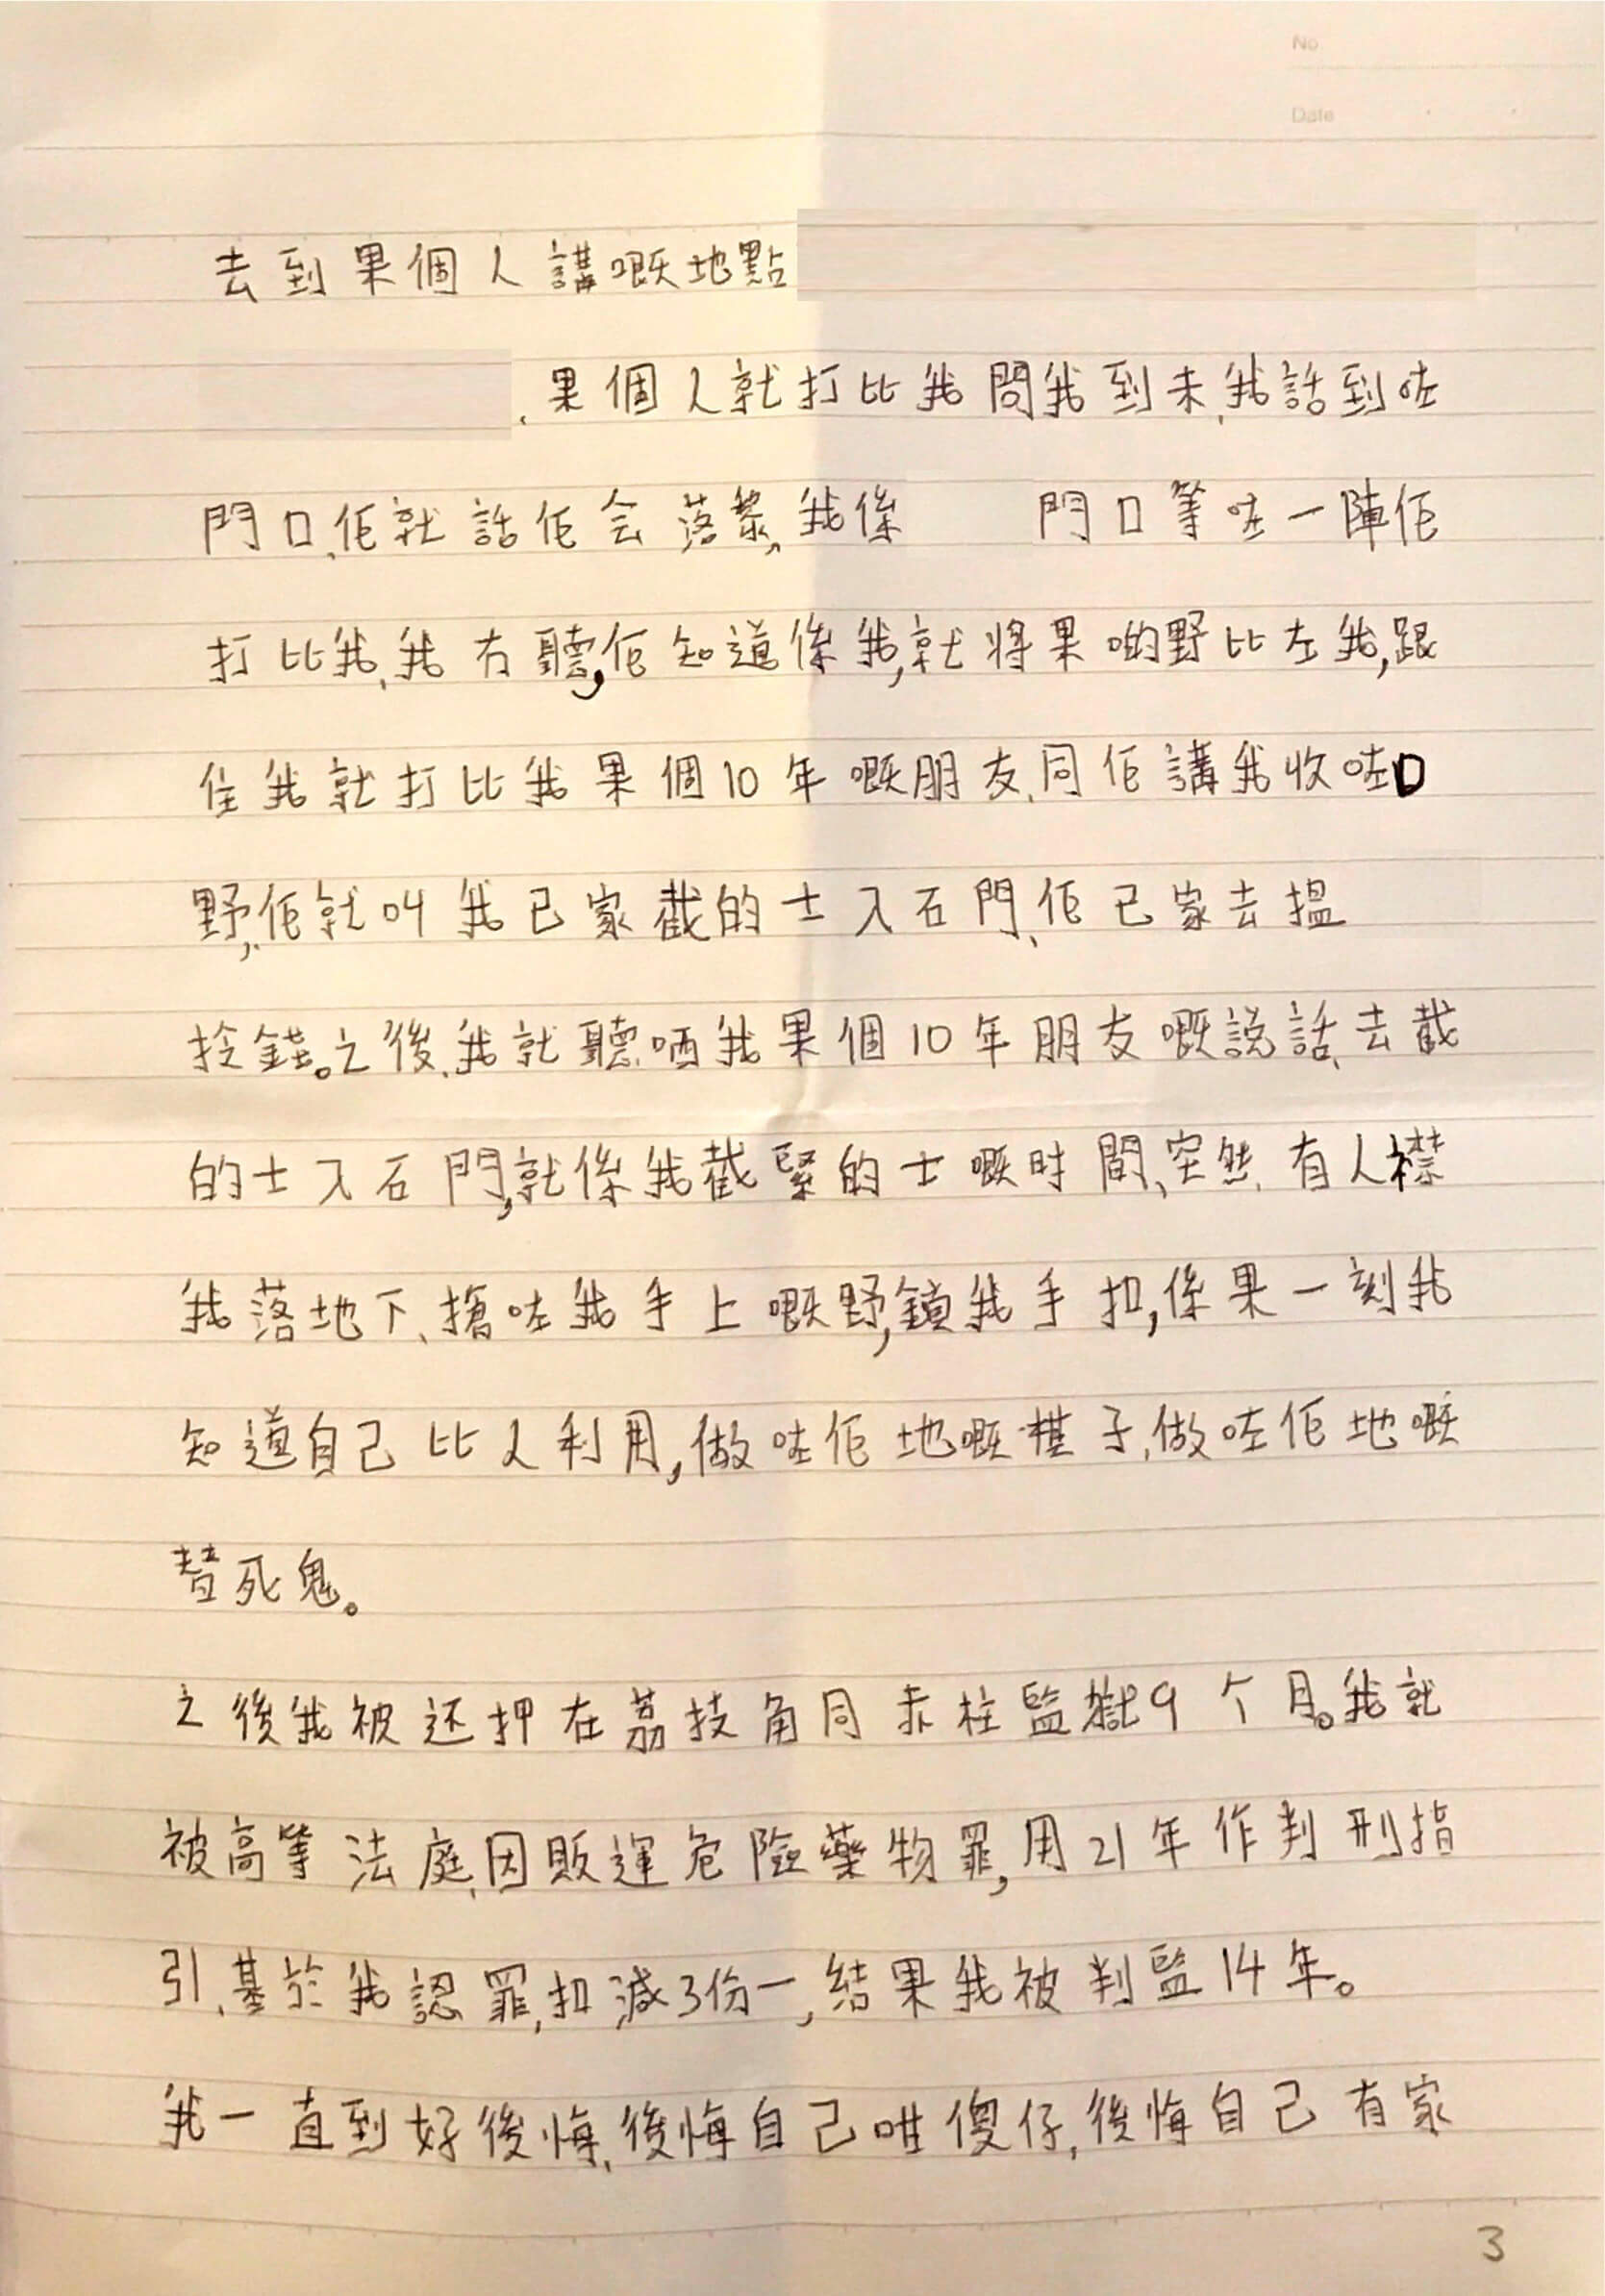 No
Date
去到果個人講嘅地點
、果個人就打比我問我到未、我話到咗
門口、佢就話佢会落黎,我係 門口等咗一陣佢
打比我、我冇聽,佢知道係我,就將果啲野比左我,跟
住我就打比我果個10年嘅朋友、同佢講我收咗
野,佢就叫我已家截的士入石門、佢已家去搵
拎錢。之後、我就聽哂我果個10年朋友嘅説話、去截
的士入石門,就係我截緊的士嘅时間、突然、有人襟
我落地下、搶咗我手上嘅野,鎖我手扣,係果一刻我
知道自己比人利用,做咗佢地嘅棋子、做咗佢地嘅
替死鬼。
之後我被还押在荔技角同赤柱監獄9个月。我就
被高等法庭、因販運危險藥物罪,用21年作判刑指
引、基於我認罪,扣減3份一,結果我被判監14年。
我一直到好後悔、後悔自己咁傻仔,後悔自己有家
3